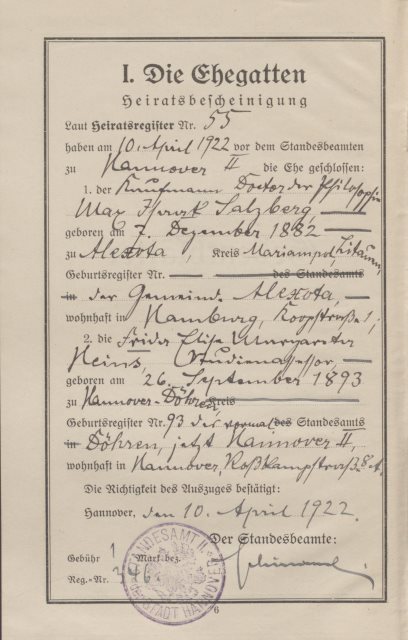 I. Die Ehegatten
Heiratsbescheinigung
Laut Heiratsregister Nr. 55
haben am 10. April 1922 vor dem Standesbeamten
zu Hannover II die Ehe geschlossen:
1. der Kaufmann Doctor der Philosophie
Max Salzberg,
geboren am 7. Dezember 1882
zu Alexota, Kreis Mariampol, Litauen,
Geburtsregister Nr. des Standesamts
in der Gemeinde Alexota,
wohnhaft in Hamburg, Koopstraße 1;
2. die Frida Elise Margarete
Heins, Studienassessor
geboren am 26. September 1893
zu Hannover-Döhren, Kreis
Geburtsregister Nr. 93 des vormal. des Standesamts
in Döhren, jetzt Hannover II,
wohnhaft in Hannover, Roßkampstraße 8 A.
Die Richtigkeit des Auszuges bestätigt:
Hannover, den 10. April 1922.
Der Standesbeamte:
Gebühr 1 Mark bez.
Reg.-Nr.
STANDESAMT II HANNOVER
6